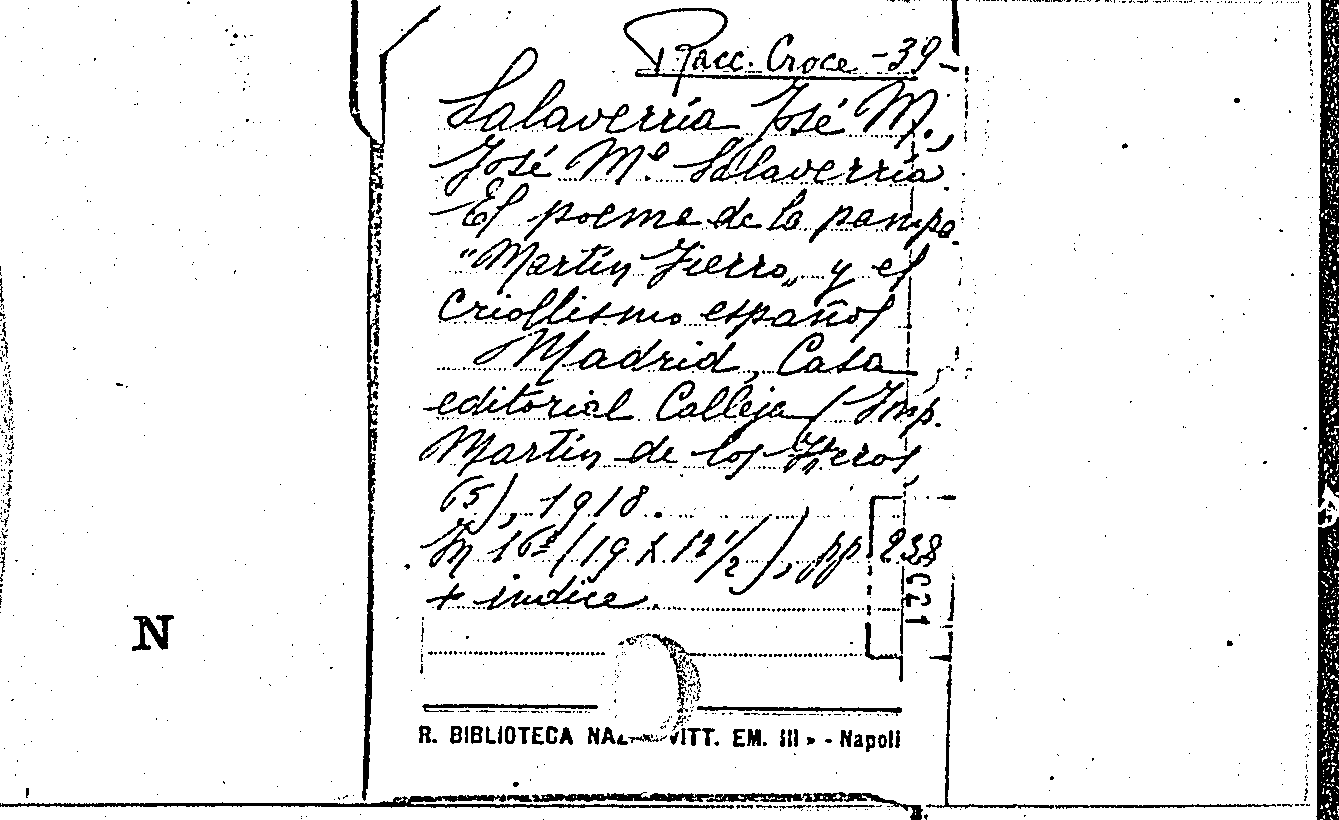 Racc. Croce - 39 -
Salaverría José M.,
José Mª. Salaverría.
El poema de la pampa.
"Martín Fierro„ y el
criollismo español
Madrid, Casa
editorial Calleja (Imp.
Martín de los Heros,
65), 1918.
In 16º (19 x 12 1/2), pp. 238
+ indice.
N
R. BIBLIOTECA NAZ. VITT. EM. III » - Napoli